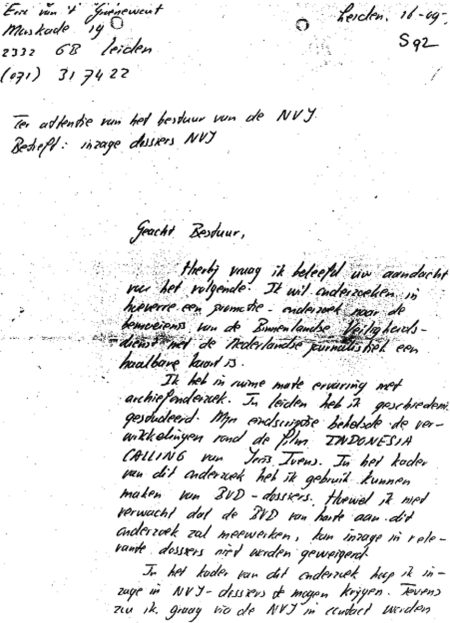 Eric van 't Groenewout
Leiden, 16-09-
Maskade 19
S92
2332 GB Leiden
(071) 317422
Ter attentie van het bestuur van de NVJ.
Betreft: inzage dossiers NVJ
Geacht Bestuur,
Hierbij vraag ik beleefd uw aandacht
voor het volgende. Ik wil onderzoeken in
hoeverre een promotie-onderzoek naar de
bemoeienis van de Binnenlandse Veiligheids-
dienst met de Nederlandse journalistiek een
haalbare kaart is.
Ik heb in ruime mate ervaring met
archiefonderzoek. In Leiden heb ik geschiedenis
gestudeerd. Mijn eindscriptie behelsde de ver-
wikkelingen rond de film INDONESIA
CALLING van Joris Ivens. In het kader
van dit onderzoek heb ik gebruik kunnen
maken van BVD-dossiers. Hoewel ik niet
verwacht dat de BVD van harte aan dit
onderzoek zal meewerken, kan inzage in rele-
vante dossiers niet worden geweigerd.
In het kader van dit onderzoek hoop ik in-
zage in NVJ-dossiers te mogen krijgen. Tevens
zou ik graag via de NVJ in contact worden